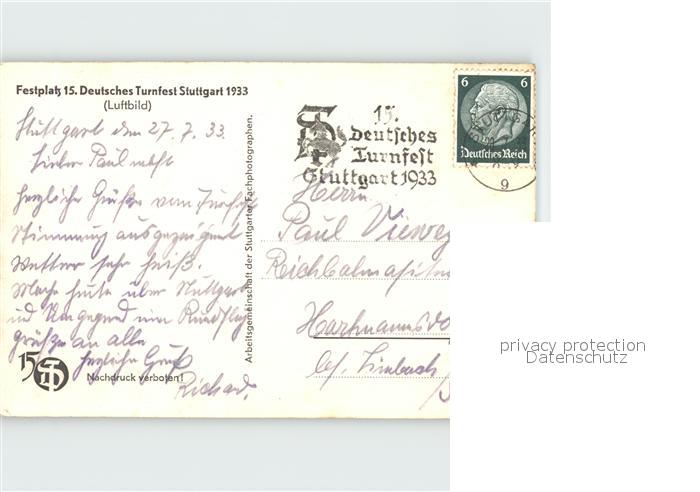 Festplatz 15. Deutsches Turnfest Stuttgart 1933
(Luftbild)
Stuttgart den 27.7.33
Lieber Paul
herzliche Grüße vom Turnfest
Stimmung ausgezeichnet
Wetter sehr heiß.
Mache heute über Stuttgart
und Umgegend ein Rundflug
grüße an alle
herzliche Gruß
Richard.
15
Nachdruck verboten!
Arbeitsgemeinschaft der Stuttgarter Fachphotographen.
15.
Deutsches
Turnfest
Stuttgart 1933
6 6
Deutsches Reich
9
Herrn
Paul Vieweg
Hartmannsdo
bei Limbach
privacy protection
Datenschutz